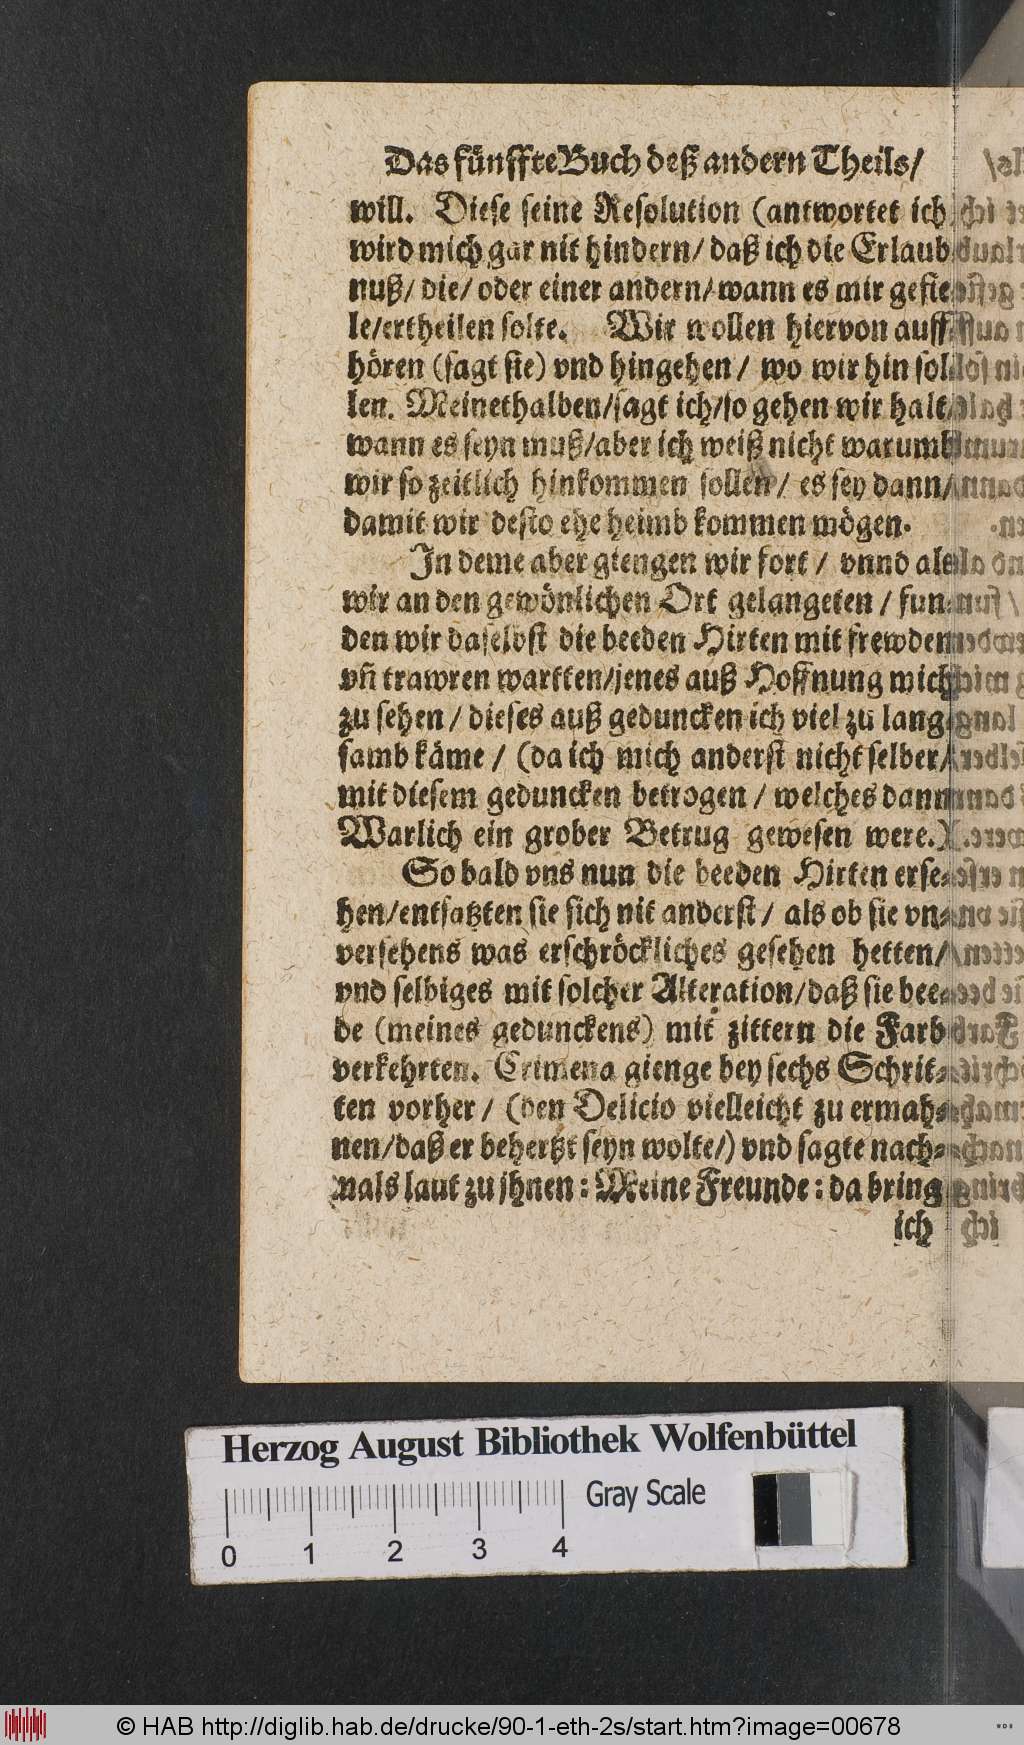 Das fünffte Buch deß andern Theils/
will. Diese seine Resolution (antwortet ich
wird mich gar nit hindern/ daß ich die Erlaub
nuß/ die/ oder einer andern/ wann es mir gefie
le/ertheilen solte. Wir wollen hiervon auff
hören (sagt sie) vnd hingehen/ wo wir hin sol
len. Meinethalben/sagt ich/so gehen wir halt/
wann es seyn muß/aber ich weiß nicht warumb
wir so zeitlich hinkommen sollen/ es sey dann/
damit wir desto ehe heimb kommen mögen.
In deme aber giengen wir fort/ vnnd als
wir an den gewönlichen Ort gelangeten/ fun
den wir daselbst die beeden Hirten mit frewden
vñ trawren wartten/jenes auß Hoffnung mich
zu sehen/ dieses auß geduncken ich viel zu lang
samb käme/ (da ich mich anderst nicht selber/
mit diesem geduncken betrogen/ welches dann
Warlich ein grober Betrug gewesen were.)
So bald vns nun die beeden Hirten erse⸗
hen/entsatzten sie sich nit anderst/ als ob sie vn⸗
versehens was erschröckliches gesehen hetten/
vnd selbiges mit solcher Alteration/daß sie bee⸗
de (meines gedunckens) mit zittern die Farb
verkehrten. Crimena gienge bey sechs Schrit⸗
ten vorher/ (den Delicio vielleicht zu ermah⸗
nen/daß er behertzt seyn wolte/) vnd sagte nach⸗
mals laut zu jhnen: Meine Freunde: da bring
ich
Herzog August Bibliothek Wolfenbüttel
Gray Scale
0 1 2 3 4
© HAB http://diglib.hab.de/drucke/90-1-eth-2s/start.htm?image=00678